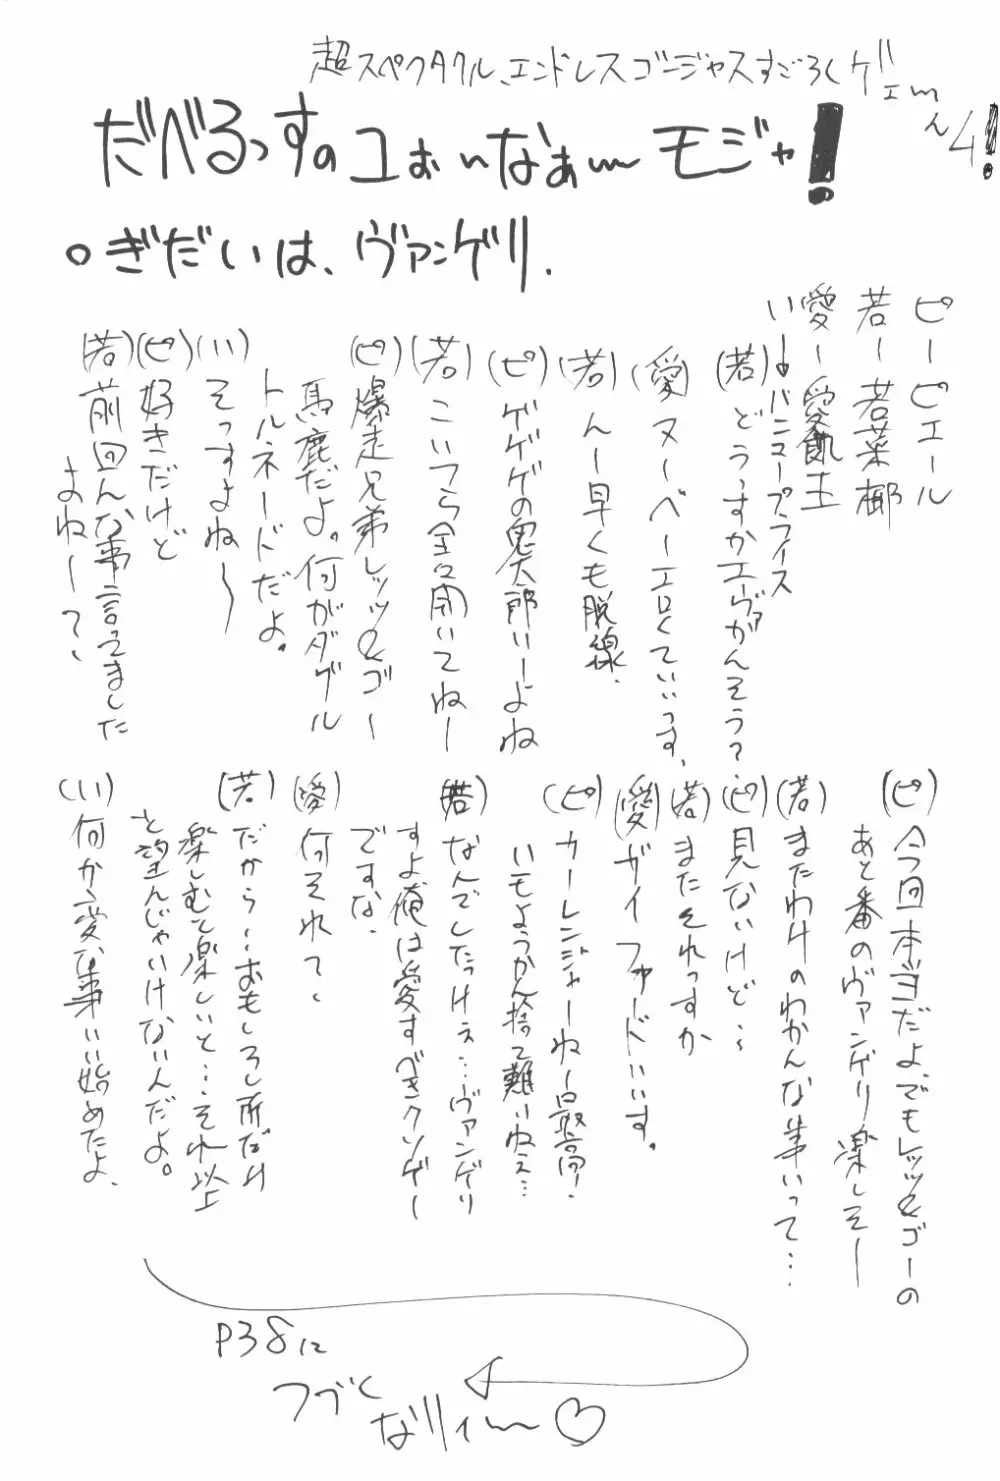 超スペクタクル、エンドレスゴージャスすごろくゲェーんム!
だべるっすのコぉぃなぁーモジャ!
○ぎだいは、ヴァンゲリ.
ピーピエール
若ー若菜椰
愛ー愛飢王
い→バニュープライス
(若)どうっすかエヴァがんそう?
(愛)ヌーベーエロくていいっす、
(若)んー早くも脱線.
(ピ)ゲゲゲの鬼太郎いーよね
(若)こいつら全々聞いてねー
(ピ)爆走兄弟レッツ&ゴー
馬鹿だよ。何がダブル
トルネードだよ。
(い)そっすよね〜
(ピ)好きだけど
(若)前回んな事言ってました
よねーて、
(ピ)今回本当だよ、でもレッツ&ゴーの
あと番のヴァンゲリ楽しそー
(若)またわけのわかんな事いって…
(ピ)見ないけど…
(若)またそれっすか
(愛)ガイファードいいす。
(ピ)カーレンジャーねー最高!
いもようかん捨て難いねぇ…
(若)なんでしたっけぇ…ヴァンゲリ
すよ俺は愛すべきクソゲー
ですな、
(愛)何それて、
(若)だから…おもしろし所だけ
楽しむて楽しいと…それ以上
を望んじゃいけないんだよ。
(い)何か変な事いい始めたよ、
P38に
つづく
なりィー♡